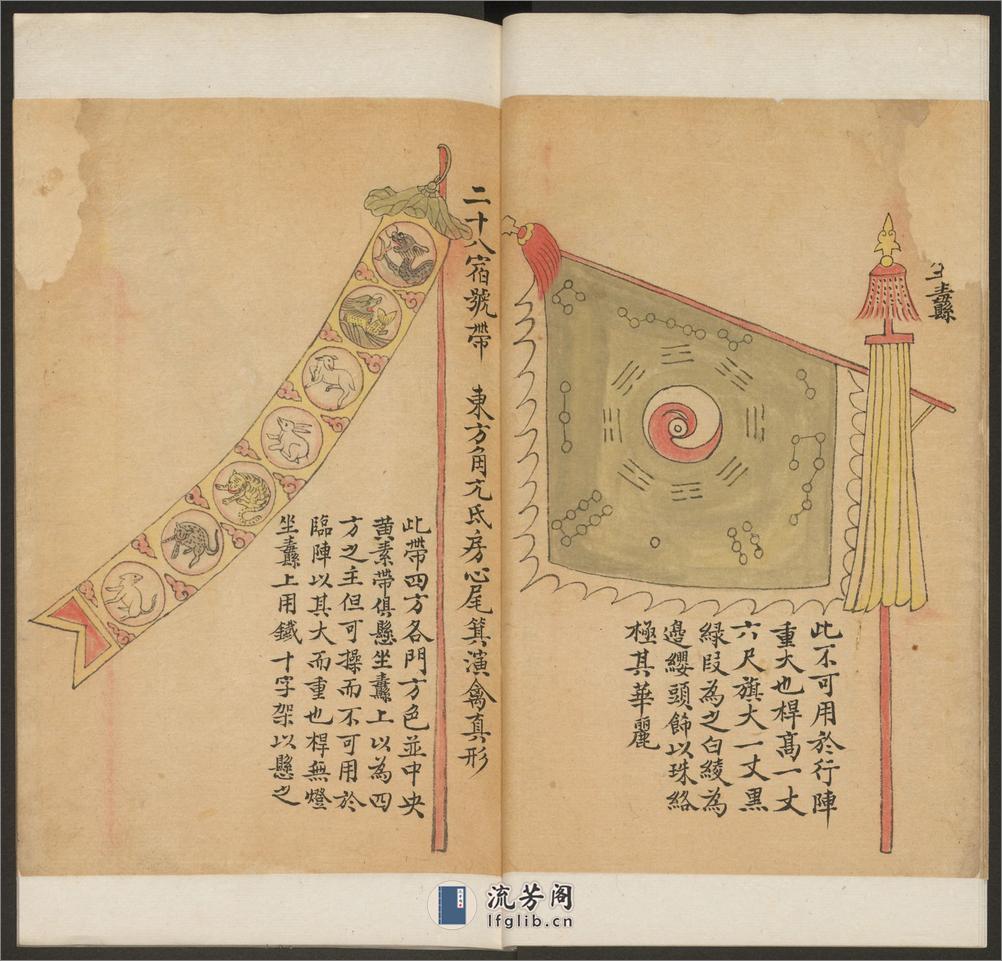 纛
此不可用於行陣
重大也桿高一丈
六尺旗大一丈黑
綠段為之白綾為
邊纓頭飾以珠絡
極其華麗
二十八宿號帶 東方角亢氐房心尾箕演禽真形
此帶四方各門方色並中央
黃素帶俱懸坐纛上以為四
方之主但可操而不可用於
臨陣以其大而重也桿無燈
坐纛上用鐵十字架以懸之
流芳阁
lfglib.cn